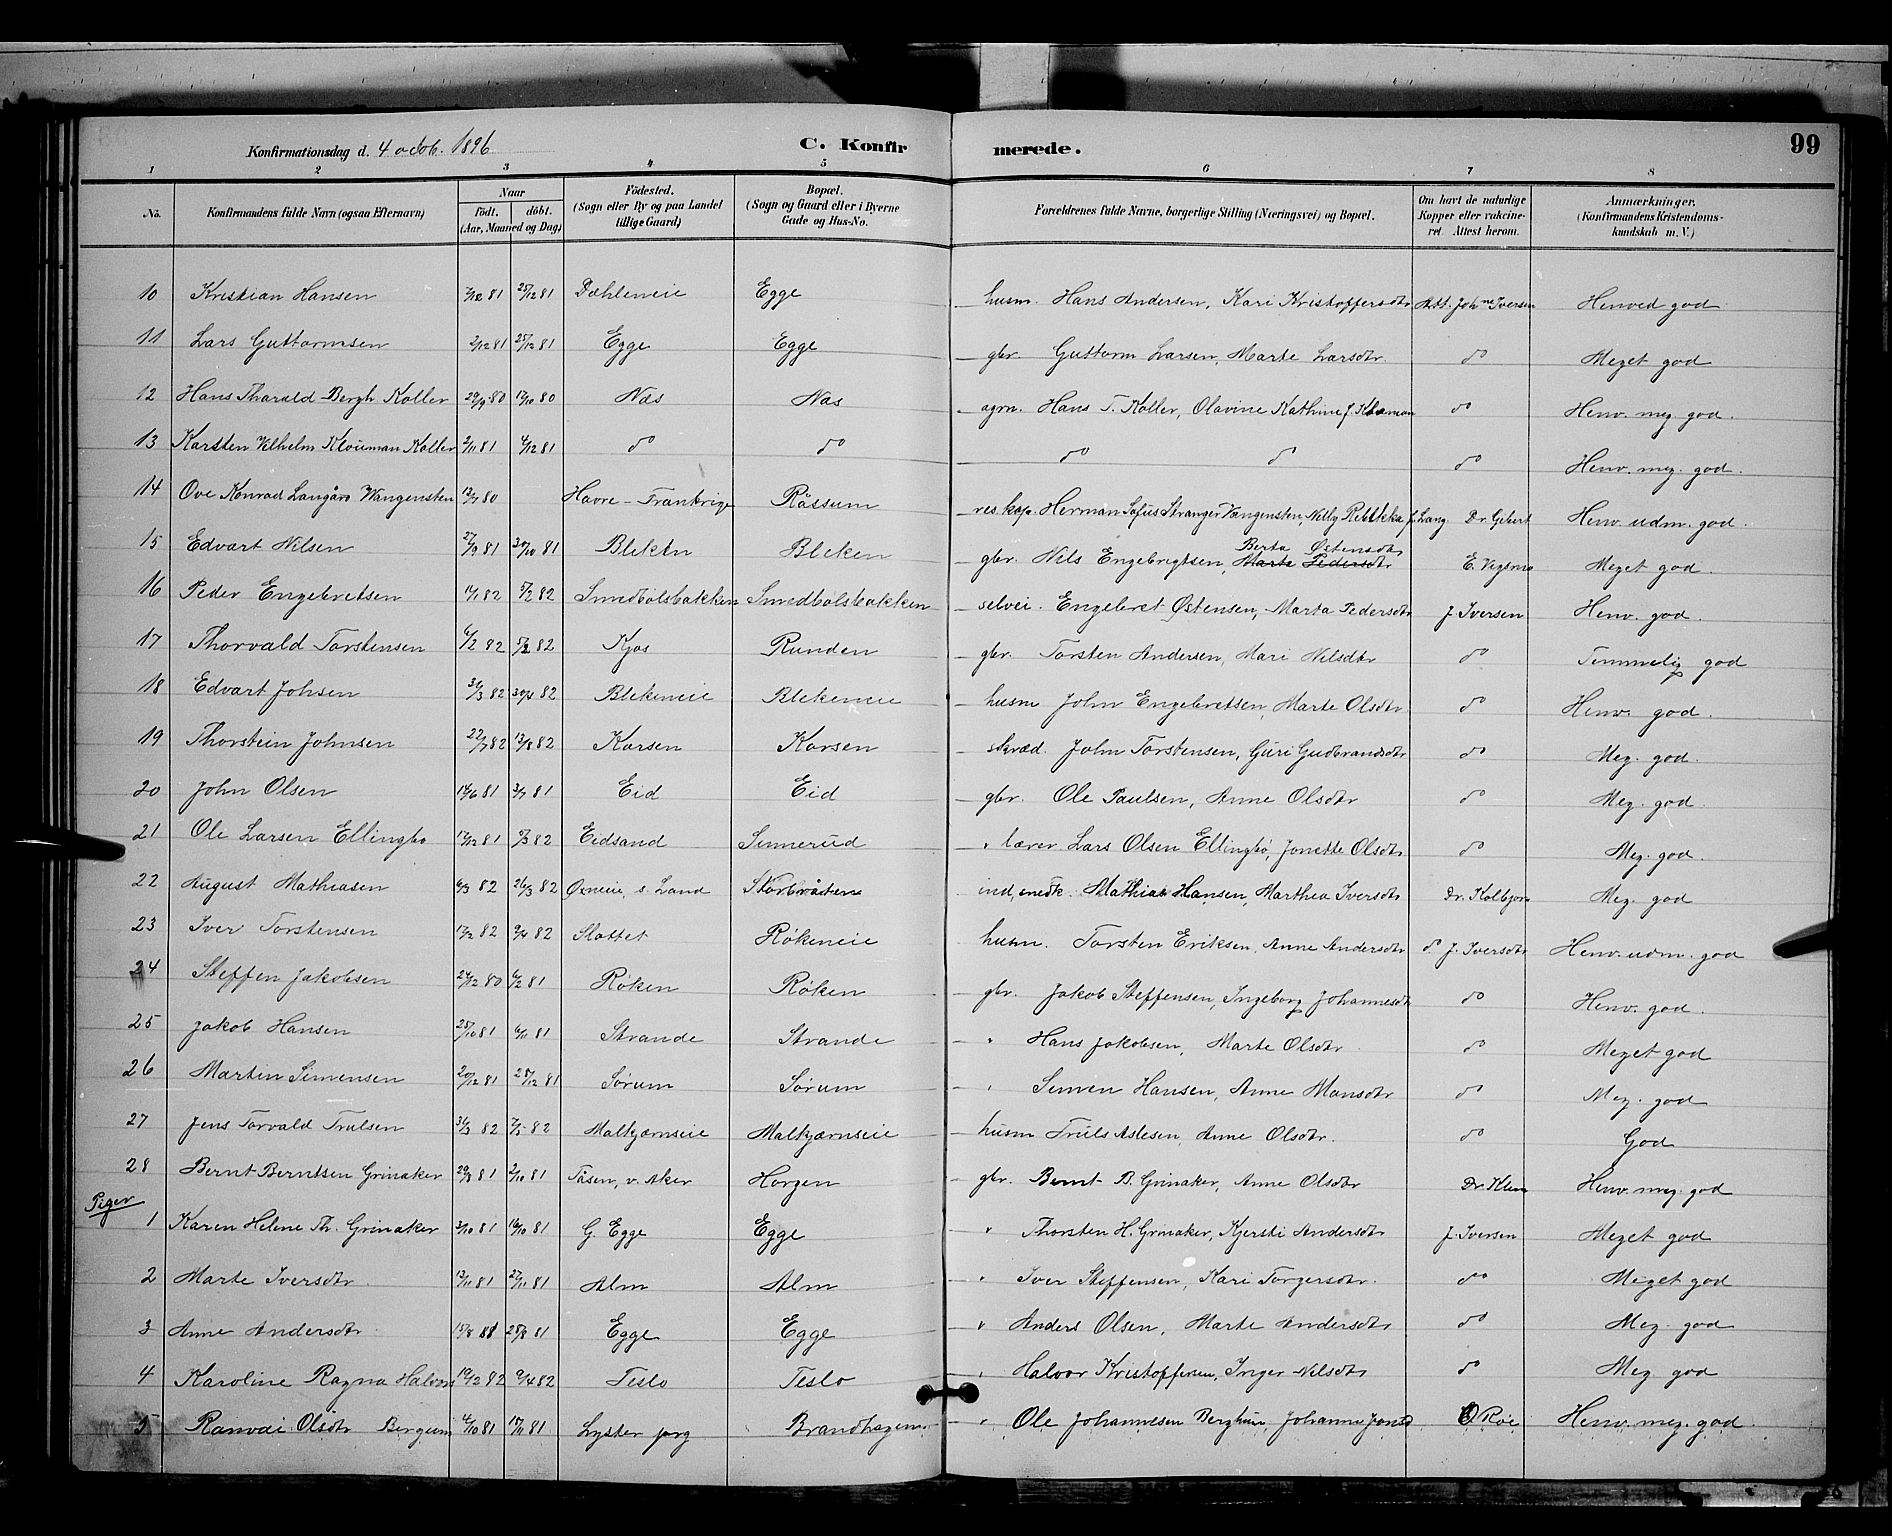 Konfirmationsdag d. 4 octob. 1896 C. Konfirmerede. 99
1 2 3 4 5 6 7 8
No. Konfirmandens fulde Navn (ogsaa Efternavn) Naar födt. döbt. (Aar, Maaned og Dag) Födested. (Sogn eller By og paa Landet tillige Gaard) Bopæl. (Sogn og Gaard eller i Byerne Gade og Hus-No. Forældrenes fulde Navne, borgerlige Stilling (Næringsvei) og Bopæl. Om havt de naturlige Kopper eller vakcineret. Attest herom. Anmærkninger. (Konfirmandens Kristendomskundskab m. V.)
10 Kristian Hansen 25/12 81 Dæhleneie Egge husm. Hans Andersen, Kari Kristoffersdtr Att. Joh. Iversen Henved god
11 Lars Guttormsen 2/12 81 25/12 81 Egge Egge gbr. Guttorm Larsen, Marte Larsdtr. do Meget god
12 Hans Tharald Bergh Koller 29/9 80 17/10 80 Næs Næs agrn. Hans T. Koller, Olavine Kathine f. Klouman do Henv. meg. god.
13 Karsten Vilhelm Klouman Koller 2/11 81 4/12 81 do do do do do Henv. meg. god.
14 Ove Konrad Langård Wangensten 13/7 80 Havre - Frankrige Råssum res. kap. Herman Sofus Stranger Vangensten, Nelly Rebekka f. Lang Dr. Gebert Henv. udm. god.
15 Edvart Nilsen 27/9 81 30/10 81 Bleken Bleken gbr. Nils Engebrigtsen, Marte Pedersdtr Berta Østensdtr E. Vigerns Meget god.
16 Peder Engebretsen 11/1 82 5/2 82 Smedbølsbakken Smedbølsbakken selvei. Engebret Østensen, Marta Pedersdtr J. Iversen Henv. god.
17 Thorvald Torstensen 6/2 82 5/3 82 Kjos Runden gbr. Torsten Andersen, Mari Nilsdtr do Temmelig god
18 Edvart Johsen 31/3 82 30/4 82 Blekeneie Blekeneie husm John Engebretsen, Marte Olsdtr do Henv. god.
19 Thorstein Johnsen 22/7 82 13/8 82 Korsen Korsen skræd. John Torstensen, Guri Gudbrandsdtr do Meg. god.
20 John Olsen 14/6 81 3/7 81 Eid Eid gbr. Ole Paulsen, Anne Olsdtr do Meg. god.
21 Ole Larsen Ellingbo 17/12 81 82 Eidsand Sinnerud " lærer Lars Olsen Ellingbø, Jonette Olsdtr do Meg. god.
22 August Mathiasen 6/3 82 26/3 82 Oxneie, s. Land Storbråten ind. snedk. Mathias Hansen, Marthea Iversdtr Dr. Kolbjørn Meg. god
23 Iver Torstensen 17/2 82 9/4 82 Slottet Røkeneie husm. Torsten Eriksen, Anne Andersdtr do J. Iversdtr Henv. udm. god
24 Steffen Jakobsen 24/12 80 6/2 81 Røken Røken gbr. Jakob Steffensen, Ingeborg Johannesdtr do Henv. god.
25 Jakob Hansen 25/10 81 6/11 81 Strande Strande " Hans Jakobsen, Marte Olsdtr do Meget god
26 Martin Simensen 20/12 81 25/12 81 Sørum Sørum " Simen Hansen, Anne Hansdtr do Meg. god
27 Jens Torvald Trulsen 31/3 82 7/5 82 Malkjærnseie Malkjærnseie husm Truls Aslesen, Anne Olsdtr. do God
28 Bernt Berntsen Grinaker 29/8 81 2/10 81 Tåsen, v. Aker Horgen gbr. Bernt B. Grinaker, Anne Olsdtr Dr. Klem Henv. meg. god
Piger
1 Karen Helene Th. Grinaker 3/10 81 16/10 81 G. Egge Egge " Thorsten H. Grinaker, Kjersti Andersdtr J. Iversen Meget god
2 Marte Iversdtr. 13/11 81 27/11 81 Alm Alm " Iver Steffensen, Kari Torgersdtr. do Meget god
3 Anne Andersdtr. 15/8 81 28/8 81 Egge Egge " Anders Olsen, Marte Andersdtr do Meg. god
4 Karoline Ragna Halvors 19/2 82 9/4 82 Teslo Teslo " Halvor Kristoffersen, Inger Nilsdtr do Meg. god
5 Ranvei Olsdtr Bergum 4/10 81 17/11 81 Lyster prg Brandhagen " Ole Johannesen Berghum, Johanne Jonsd O Roe Henv. meg. god